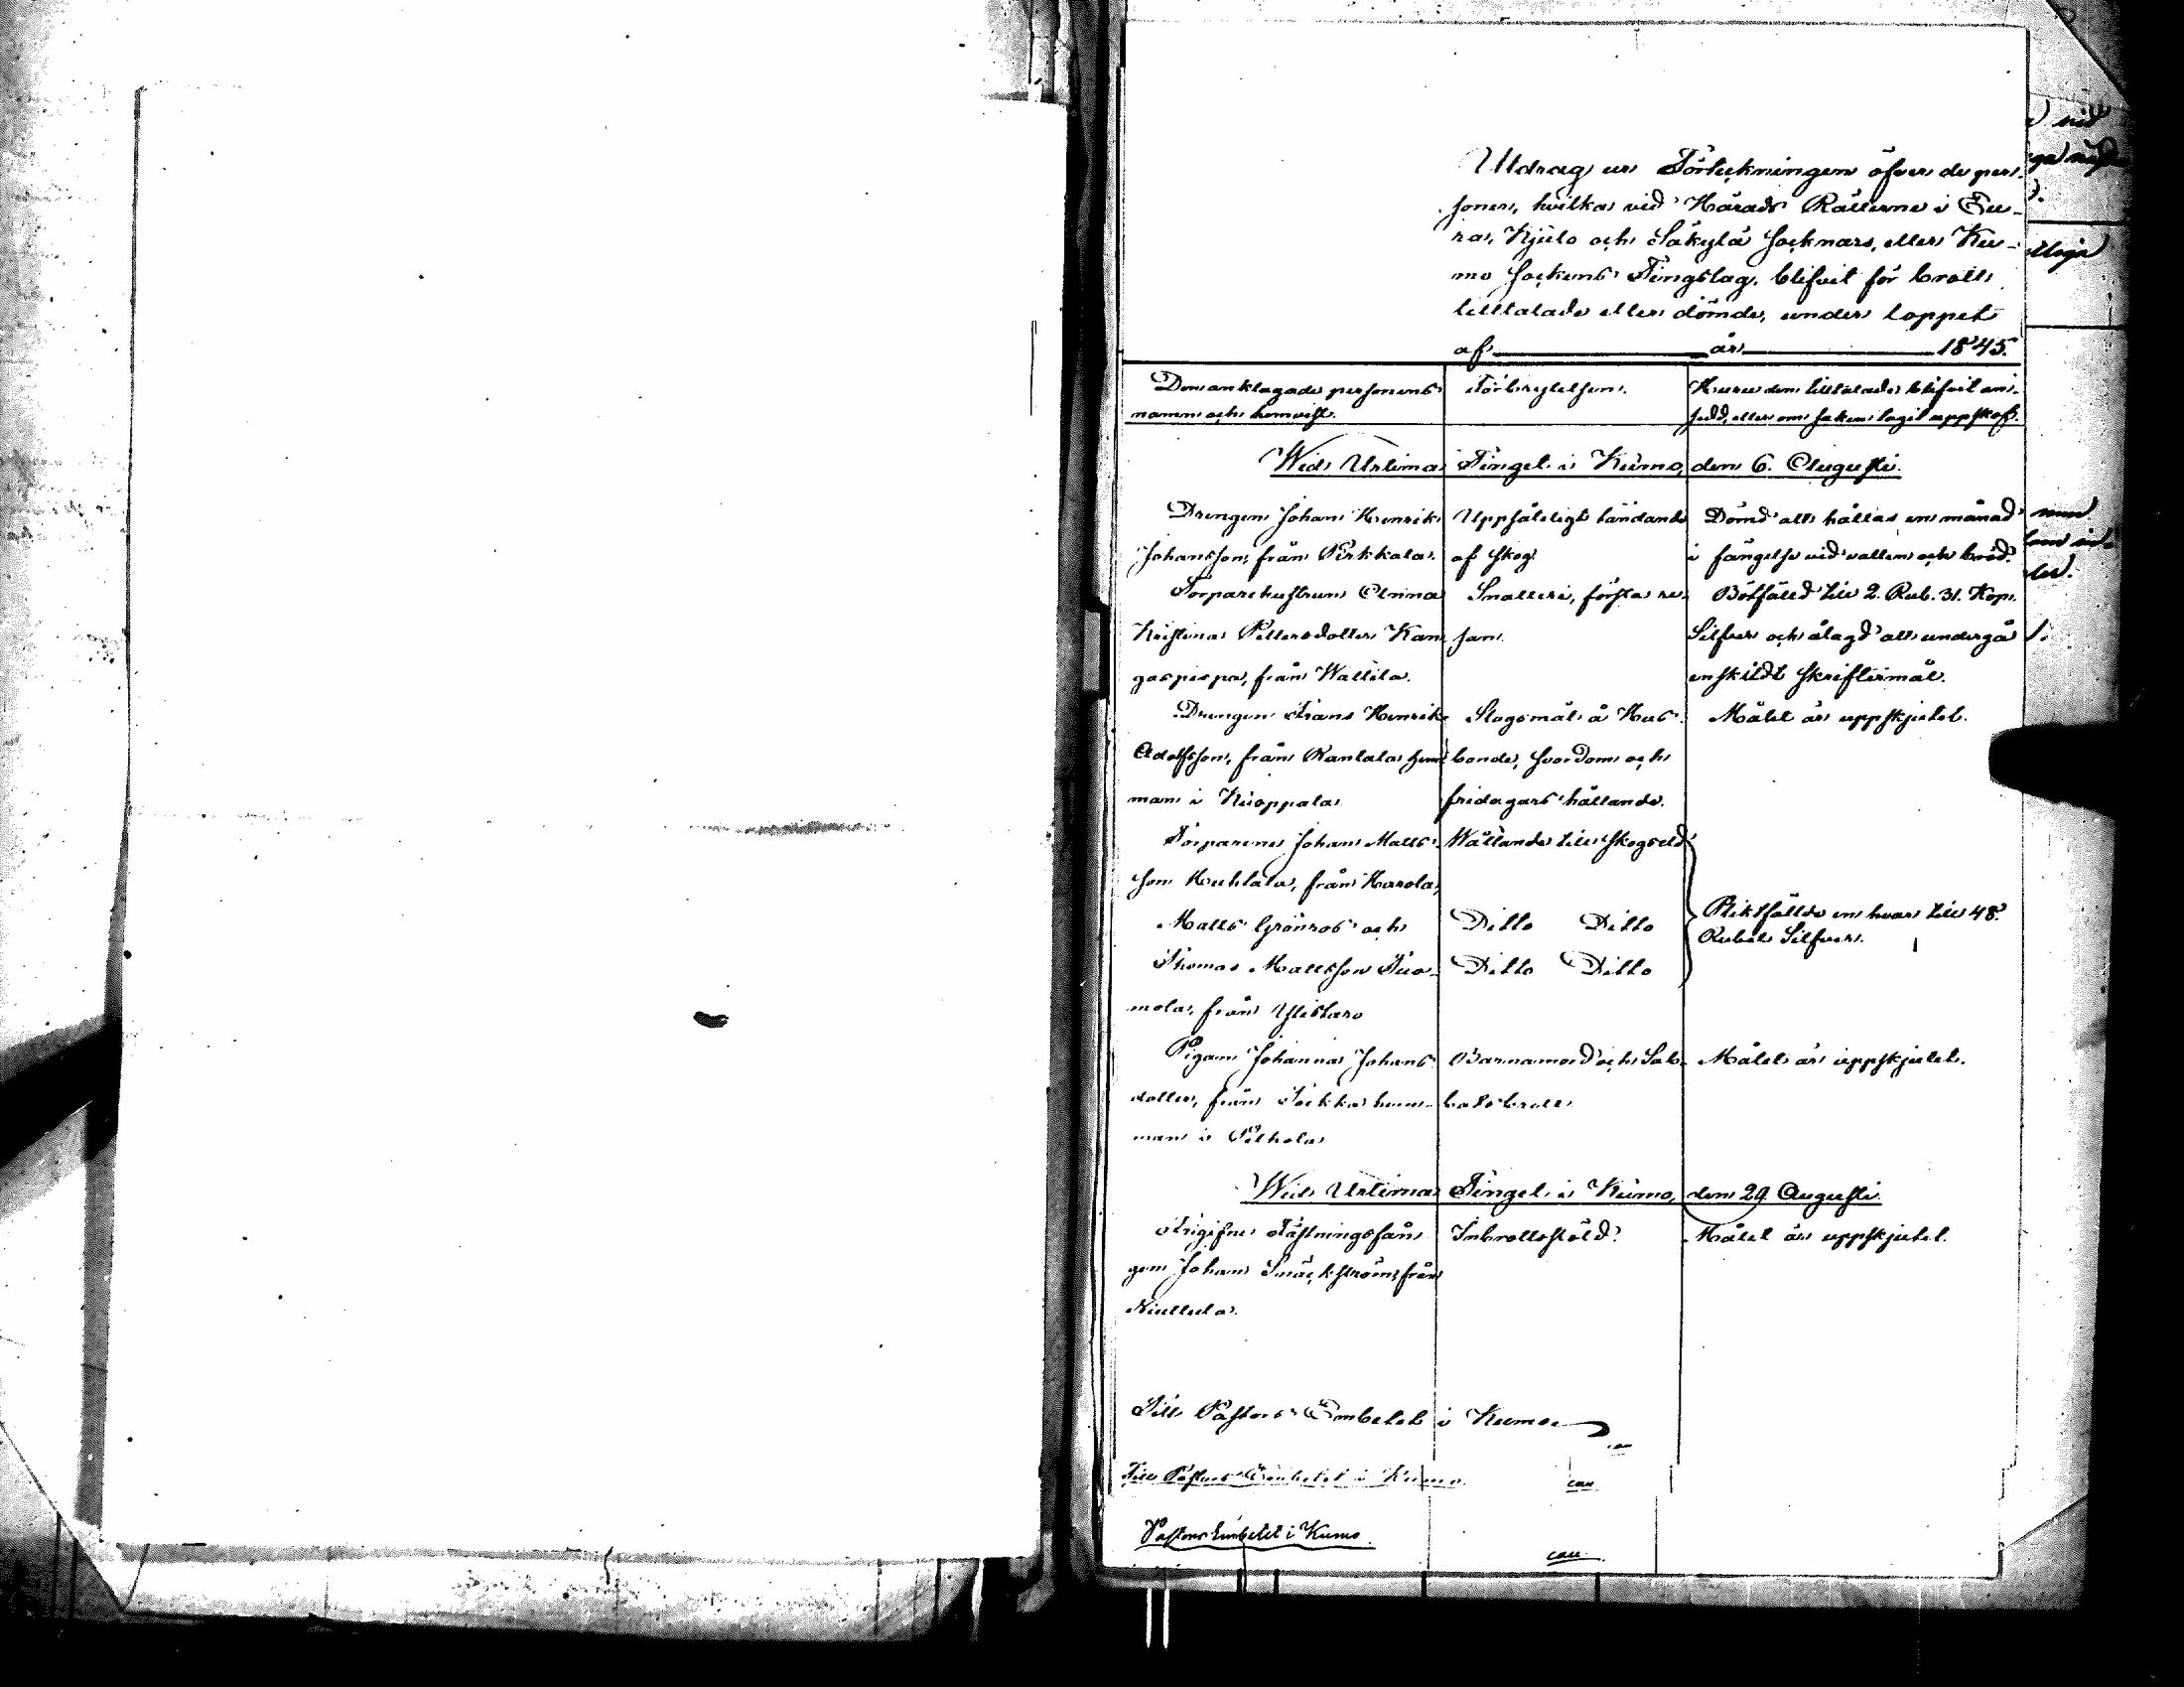 Utdrag ur Förteckningen öfver de per-
soner, hvilka vid Härads Rätterne i Eu-
ra, Kjulo och Säkylä Socknars, eller Ku-
mo Sockens Tingslag, blifvit för brott
tilltalade eller dömde, under loppet
af år 1845.
Den anklagade personens
namn och hemvist.
Förbrytelsen.
Huru den tilltalade blifvit an-
sedd, eller om saken tagit uppskof.
Wid Urtima Tinget i Kumo, den 6. Augusti.
Drengen Johan Henrik
Johansson, från Pirkkala.
Uppsåteligt tändande
af skog
Dömd att hållas en månad
i fängelse vid vatten och bröd.
Torparehustrun Anna
Kristina Pettersdotter Kan-
gaspispa, från Wattila.
Snatteri, första re-
san.
Bötfälld till 2. Rub. 31. Kop.
Silfver och ålagd att undergå
enskildt skriftermål.
Drengen Frans Henrik
Adolfsson, från Rantala hem-
man i Kuoppala
Slagsmål å Hus-
bonde, svordom och
fridagars hållande.
Målet är uppskjutet.
Torparene Johan Matts-
son Huhtala, från Harola,
Matts Grönros och
Thomas Mattsson Tuo-
mola, från Ylistaro
Wållande till skogseld
Ditto Ditto
Ditto Ditto
Pliktfällde en hvar till 48.
Rubel Silfver.
Pigan Johanna Johans-
dotter, från Sockka hem-
man i Pelhola
Barnamord och Sab-
batsbrott
Målet är uppskjutet.
Wid Urtima Tinget i Kumo, den 29. Augusti.
Frigifne Fästningsfån-
gen Johan Snäckström, från
Niuttula.
Inbrottsstöld.
Målet är uppskjutet.
Till Pastors Embetet i Kumo
Till Pastors Embetet i Kumo
Pastors Embetet i Kumo